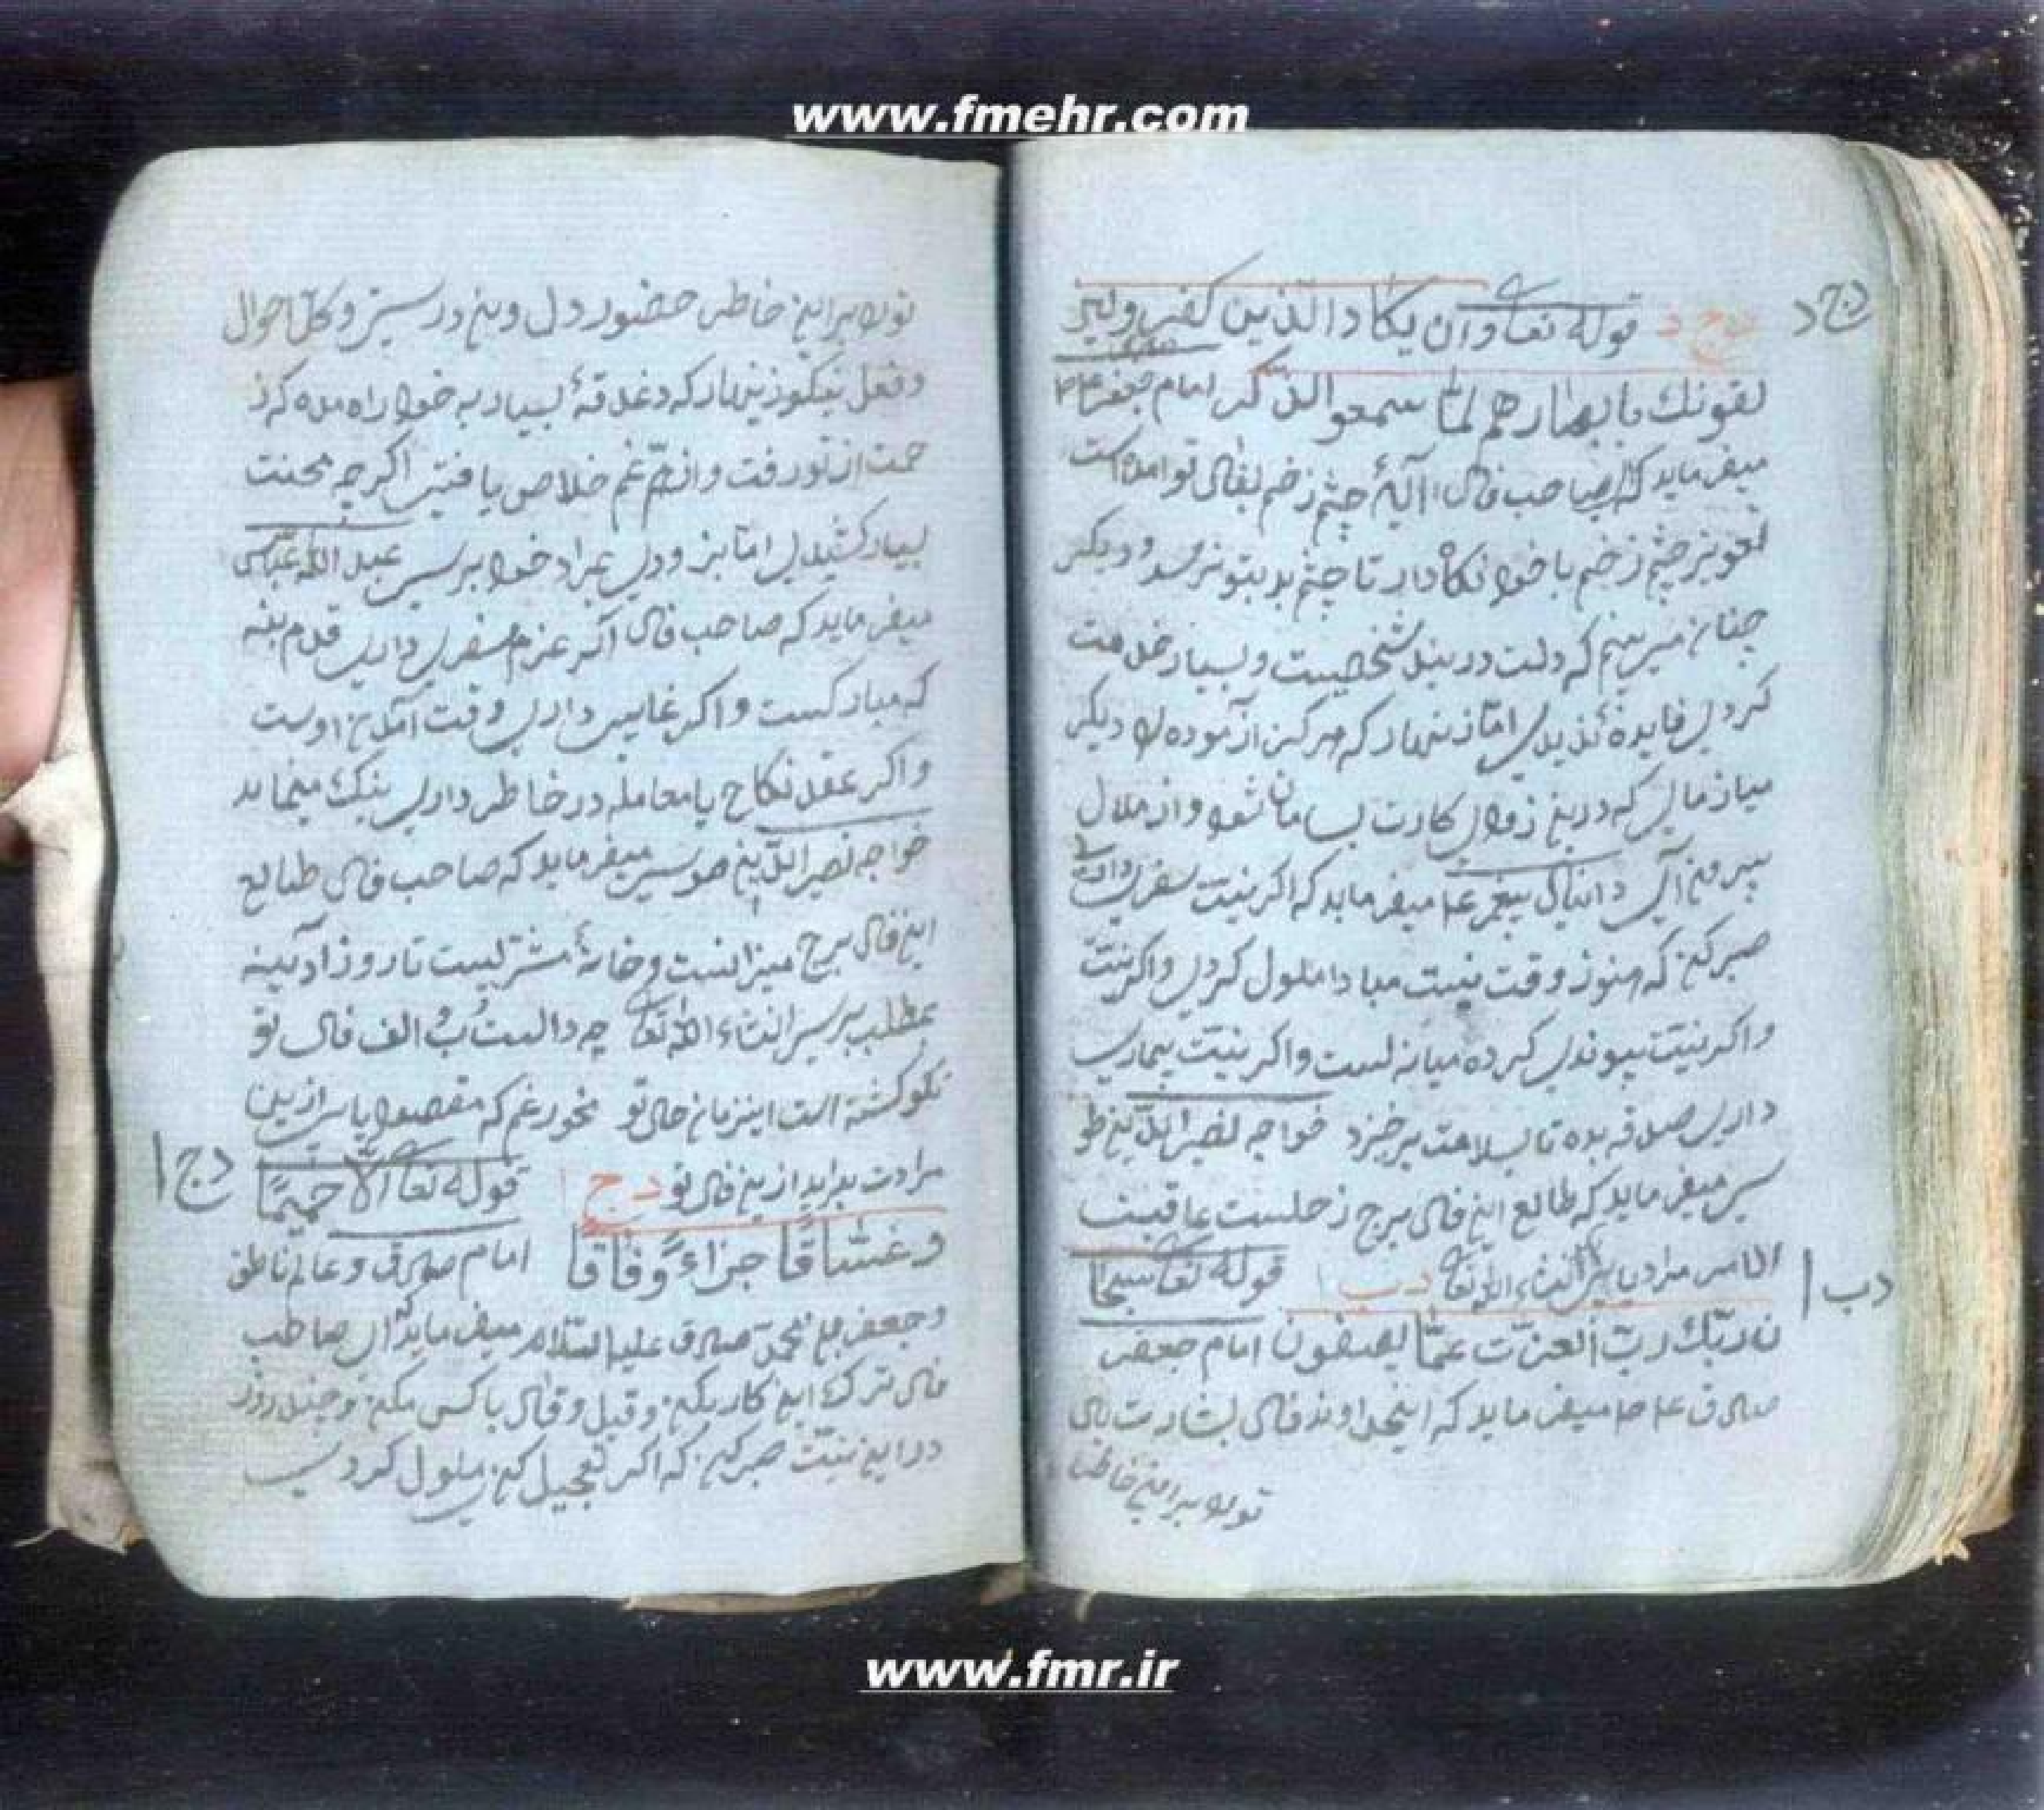 www.fmehr.com
دج د
دج د قوله تعا وان یکاد الذین کفرو لیز
لقونك بابصارهم لما سمعو الذکر امام جعفر
میفرماید که ای صاحب فال آیهٔ چشم زخم بفال تو امده است
تعویز چشم زخم با خود نکاه دار تا چشم بد بتو نرسد و دیکر
چنان میبینم که دلت در بند شخصیست و بسیار خدمت
کردی فایده ندیدی اما زینهار که هرکز آزموده را دیکر
میازمای که درین زودی کارت بسامان شود و از ملال
بیرون آی دانیال پیغمبر ع میفرماید که اکر نیت سفر داری
صبر کن که هنوز وقت نیست مبادا ملول کردی و اکر نیت
و اکر نیت پیوندی کرده میانه است و اکر نیت بیماری
داری صدقه بده تا بسلامت برخیزد خواجه نصیر الدین طو
سی میفرماید که طالع این فال برج زحلست عاقبت
الامر مراد یابی انشاء الله تعا د ب ا قوله تعا سبحا
دب ا
ن ربك رب العزت عما یصفون امام جعفر
صادق ع میفرماید که ایخداوند فال بشارت باد
تورا براین خاطر
تورا براین خاطر حضور دل و من در سیر و کل احوال
و فعل نیکو زینهار که دغدقهٔ بسیار به خود راه مده که ز
حمت از تو رفت و از هم غم خلاص یافتی اکرچه محنت
بسیار کشیدی اما بزودی بمراد خود برسی عبد الله عباس
میفرماید که صاحب فال اکر عزم سفری داری قدم بنه
که مبارکست و اکر غایبی داری وقت آمدن اوست
و اکر عقد نکاح یا معامله در خاطر داری نیك مینماید
خواجه نصیر الدین طوسی میفرماید که صاحب فال طالع
این فال برج میزانست و خانهٔ مشتریست تا روز آدینه
بمطلب برسی انشاء الله تعا چه دالست ب و الف فال تو
نکو کشته است اینزمان حال تو مخور غم که مقصود یابی ازین
مرادت براید ازین فال تو د ج ا قوله تعا الا حمیما
دج ا
و غساقا جزاء وفاقا امام صادق و عالم ناطق
و جعفر بن محمد صادق علیه السلام میفرماید ای صاحب
فال ترك این کار بکن و قیل و قال با کسی مکن و چند روز
در این نیت صبر کن که اکر تعجیل کنی ملول کردی
www.fmr.ir